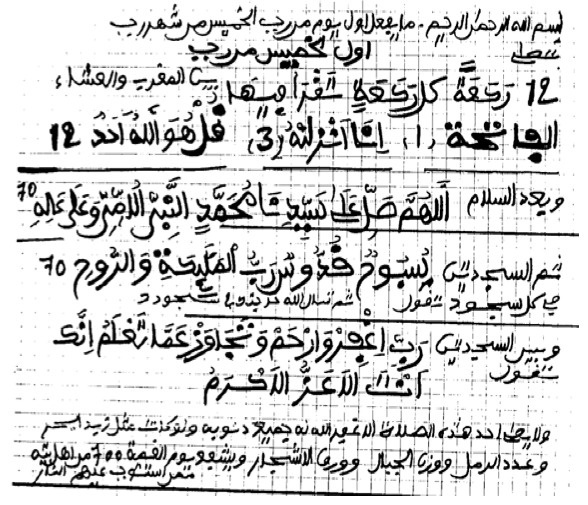 بسم الله الرحمان الرحيم. ما يفعل اول يوم من رجب الخميس من شهر رجب
تصلي
اول خميس من رجب
12 ركعة كل ركعة تقرأ فيها بين المغرب والعشاء
الفاتحة (1) انا انزلنه (3) قل هو الله احد 12
وبعد السلام اللهم صل على سيدنا محمد النبي الامي وعلى ءاله 70
ثم السجدتين سبوح قدوس رب المليكة والروح 70
في كل سجود تقول ثم تسأل الله سجود
وبين السجدتين رب اغفر وارحم وتجاوز عما تعلم انك
تقول
انت الاعز الاكرم
ولا يصلي احد هذه الصلاة الا غفر الله له جميع ذنوبه ولو كانت مثل زبد البحر
وعدد الرمل ووزن الجبال وورق الاشجار ويشفع يوم القيمة 700 من اهل بيته
ممن استوجب عليهم النار